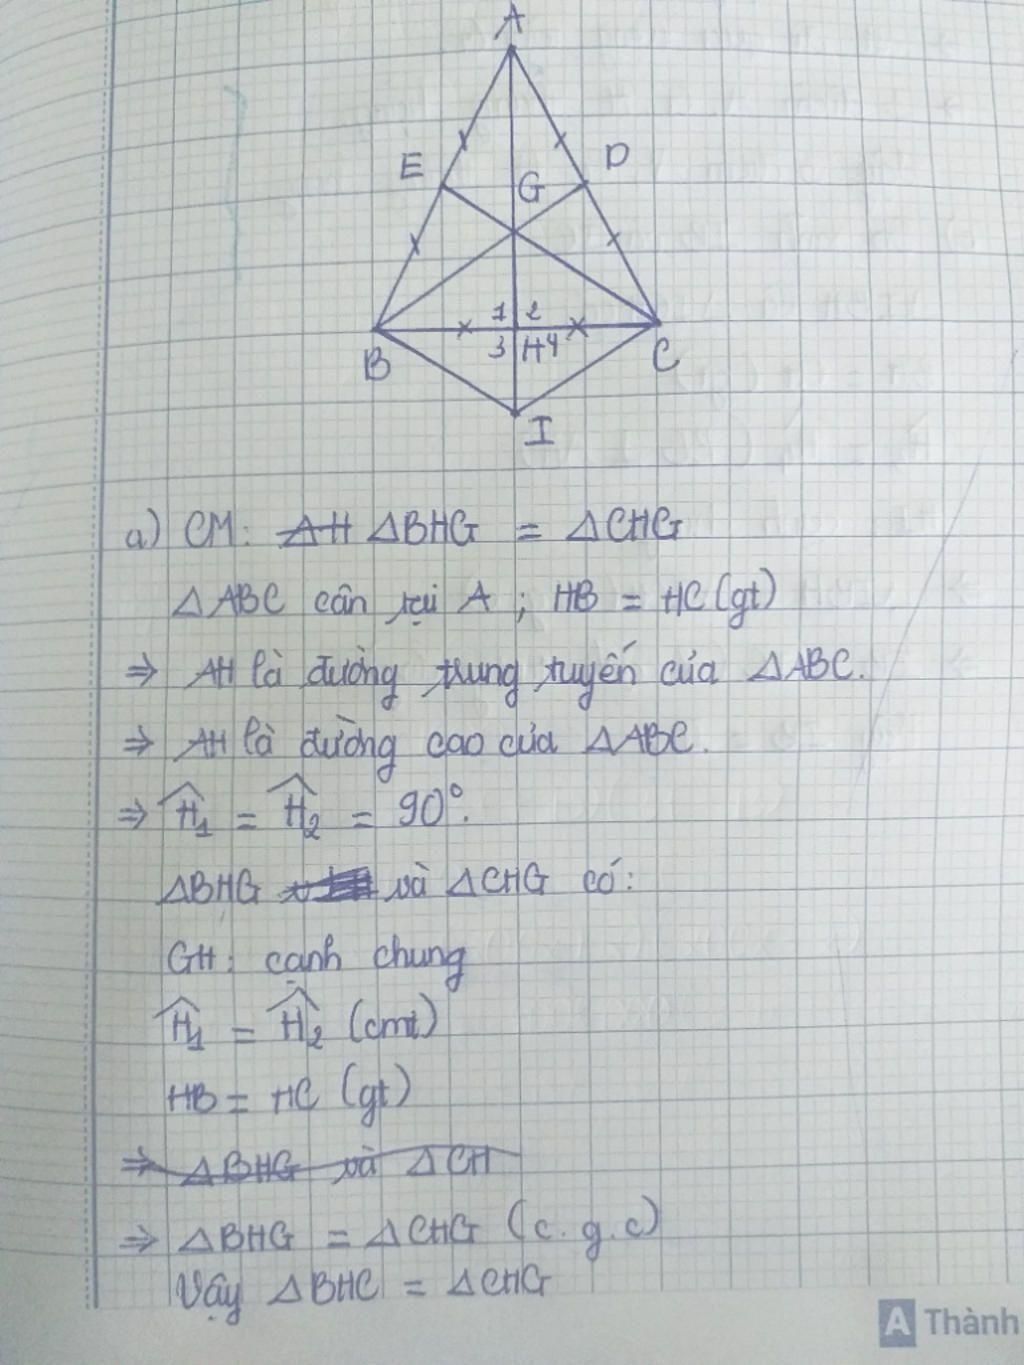 A
E D
G
1 2
3 H 4
B C
I
a) CM: AH ΔBHG = ΔCHG
ΔABC cân tại A ; HB = HC (gt)
⇒ AH là đường trung tuyến của ΔABC.
⇒ AH là đường cao của ΔABC.
⇒ Ĥ₁ = Ĥ₂ = 90°.
ΔBHG và ΔCHG có:
GH: cạnh chung
Ĥ₁ = Ĥ₂ (cmt)
HB = HC (gt)
⇒ ΔBHG và ΔCH
⇒ ΔBHG = ΔCHG (c.g.c)
Vậy ΔBHC = ΔCHG
A Thành